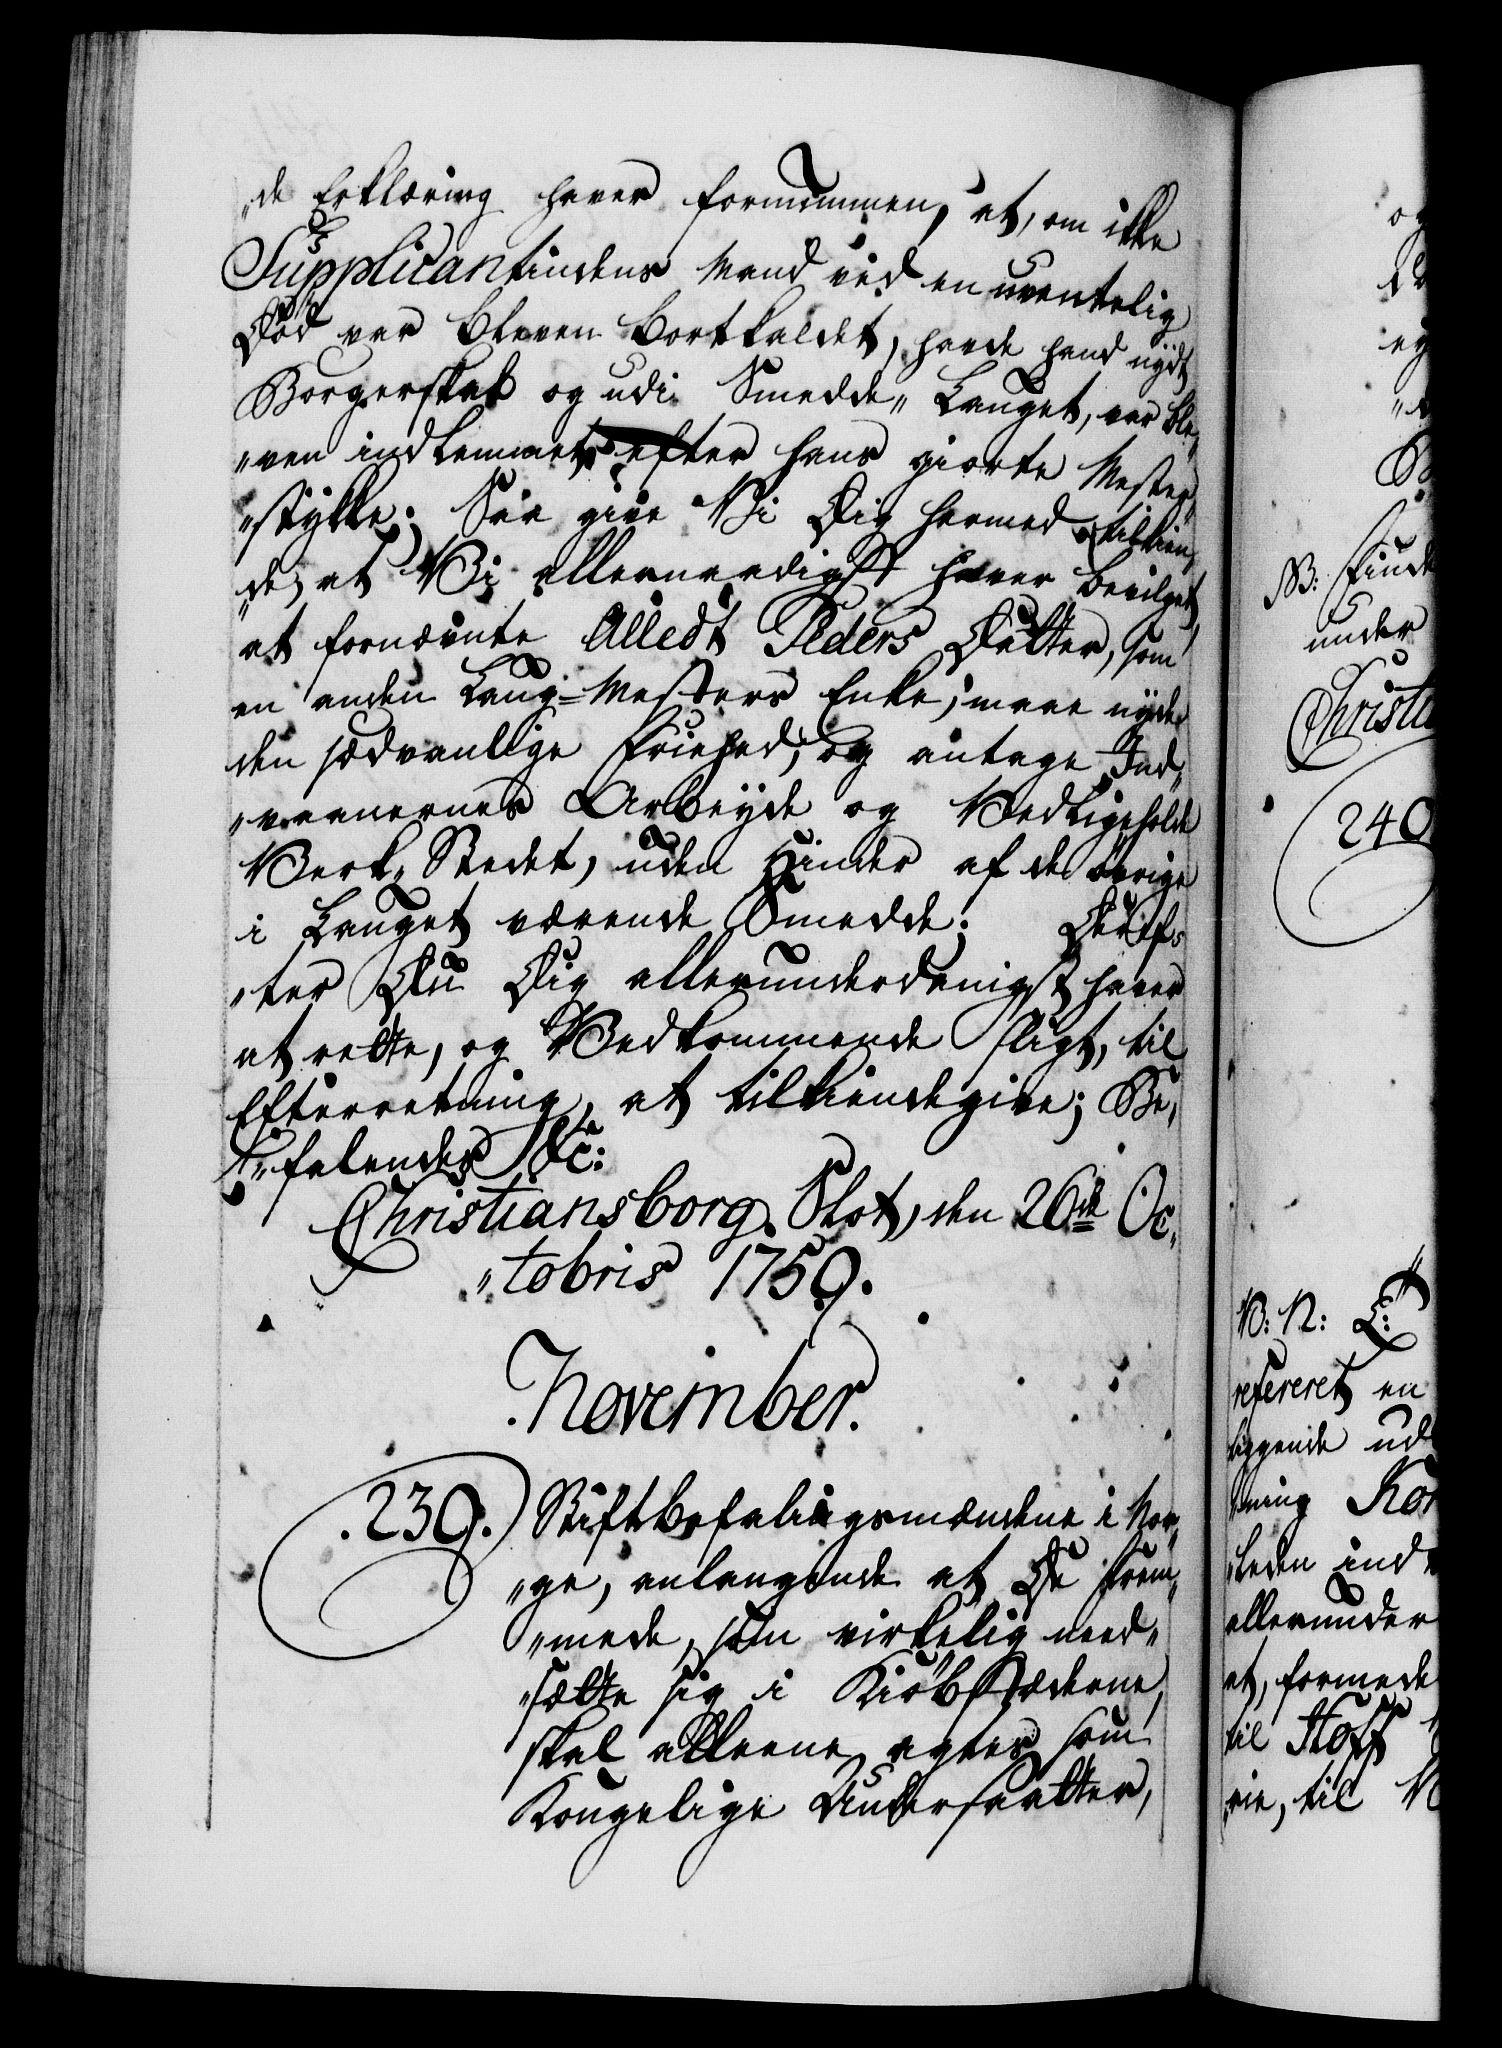 "de Erklæring haver fornummen, at, om ikke
Supplicantindens Mand ved en uventelig
Død var bleven bortkaldet, havde hand nydt
Borgerskab og udi Smedde„ Lauget, var ble„
„ven indlemmet efter hans giorte Mester„
„stykke; Saa give Vi Dig hermed tilkien„
„de, at Vi allernaadigst haver bevilget,
at fornævnte Alledt Peders Datter, som
en anden Laug-Mesters Enke, maae nyde
den sædvanlige Friehed, og antage Ind„
„vaanernes Arbeyde og Vedligeholde
Verk„ Stedet, uden Hinder af de øvrige
i Lauget værende Smedde; Deref„
„ter Du Dig allerunderdanigst haver
at rette, og Vedkommende sligt, til
Efterretning, at tilkiendegive; Be„
„falendes &c:
Christiansborg Slot, den 26de Oc„
„tobris 1759.
November.
239.) Stiftbefalingsmændene i Nor„
„ge, anlangende at De Frem„
„mede, som virkelig need„
„sætte sig i Kiøbstæderne,
skal alleene agtes som
Kongelige Undersaatter,
og
NB: Finde
under
Christi
240
V: N: L:
refereret en
liggende ud
„ning Kon
„leden ind
allerunder
et, formede
til Hoff
„rie, til